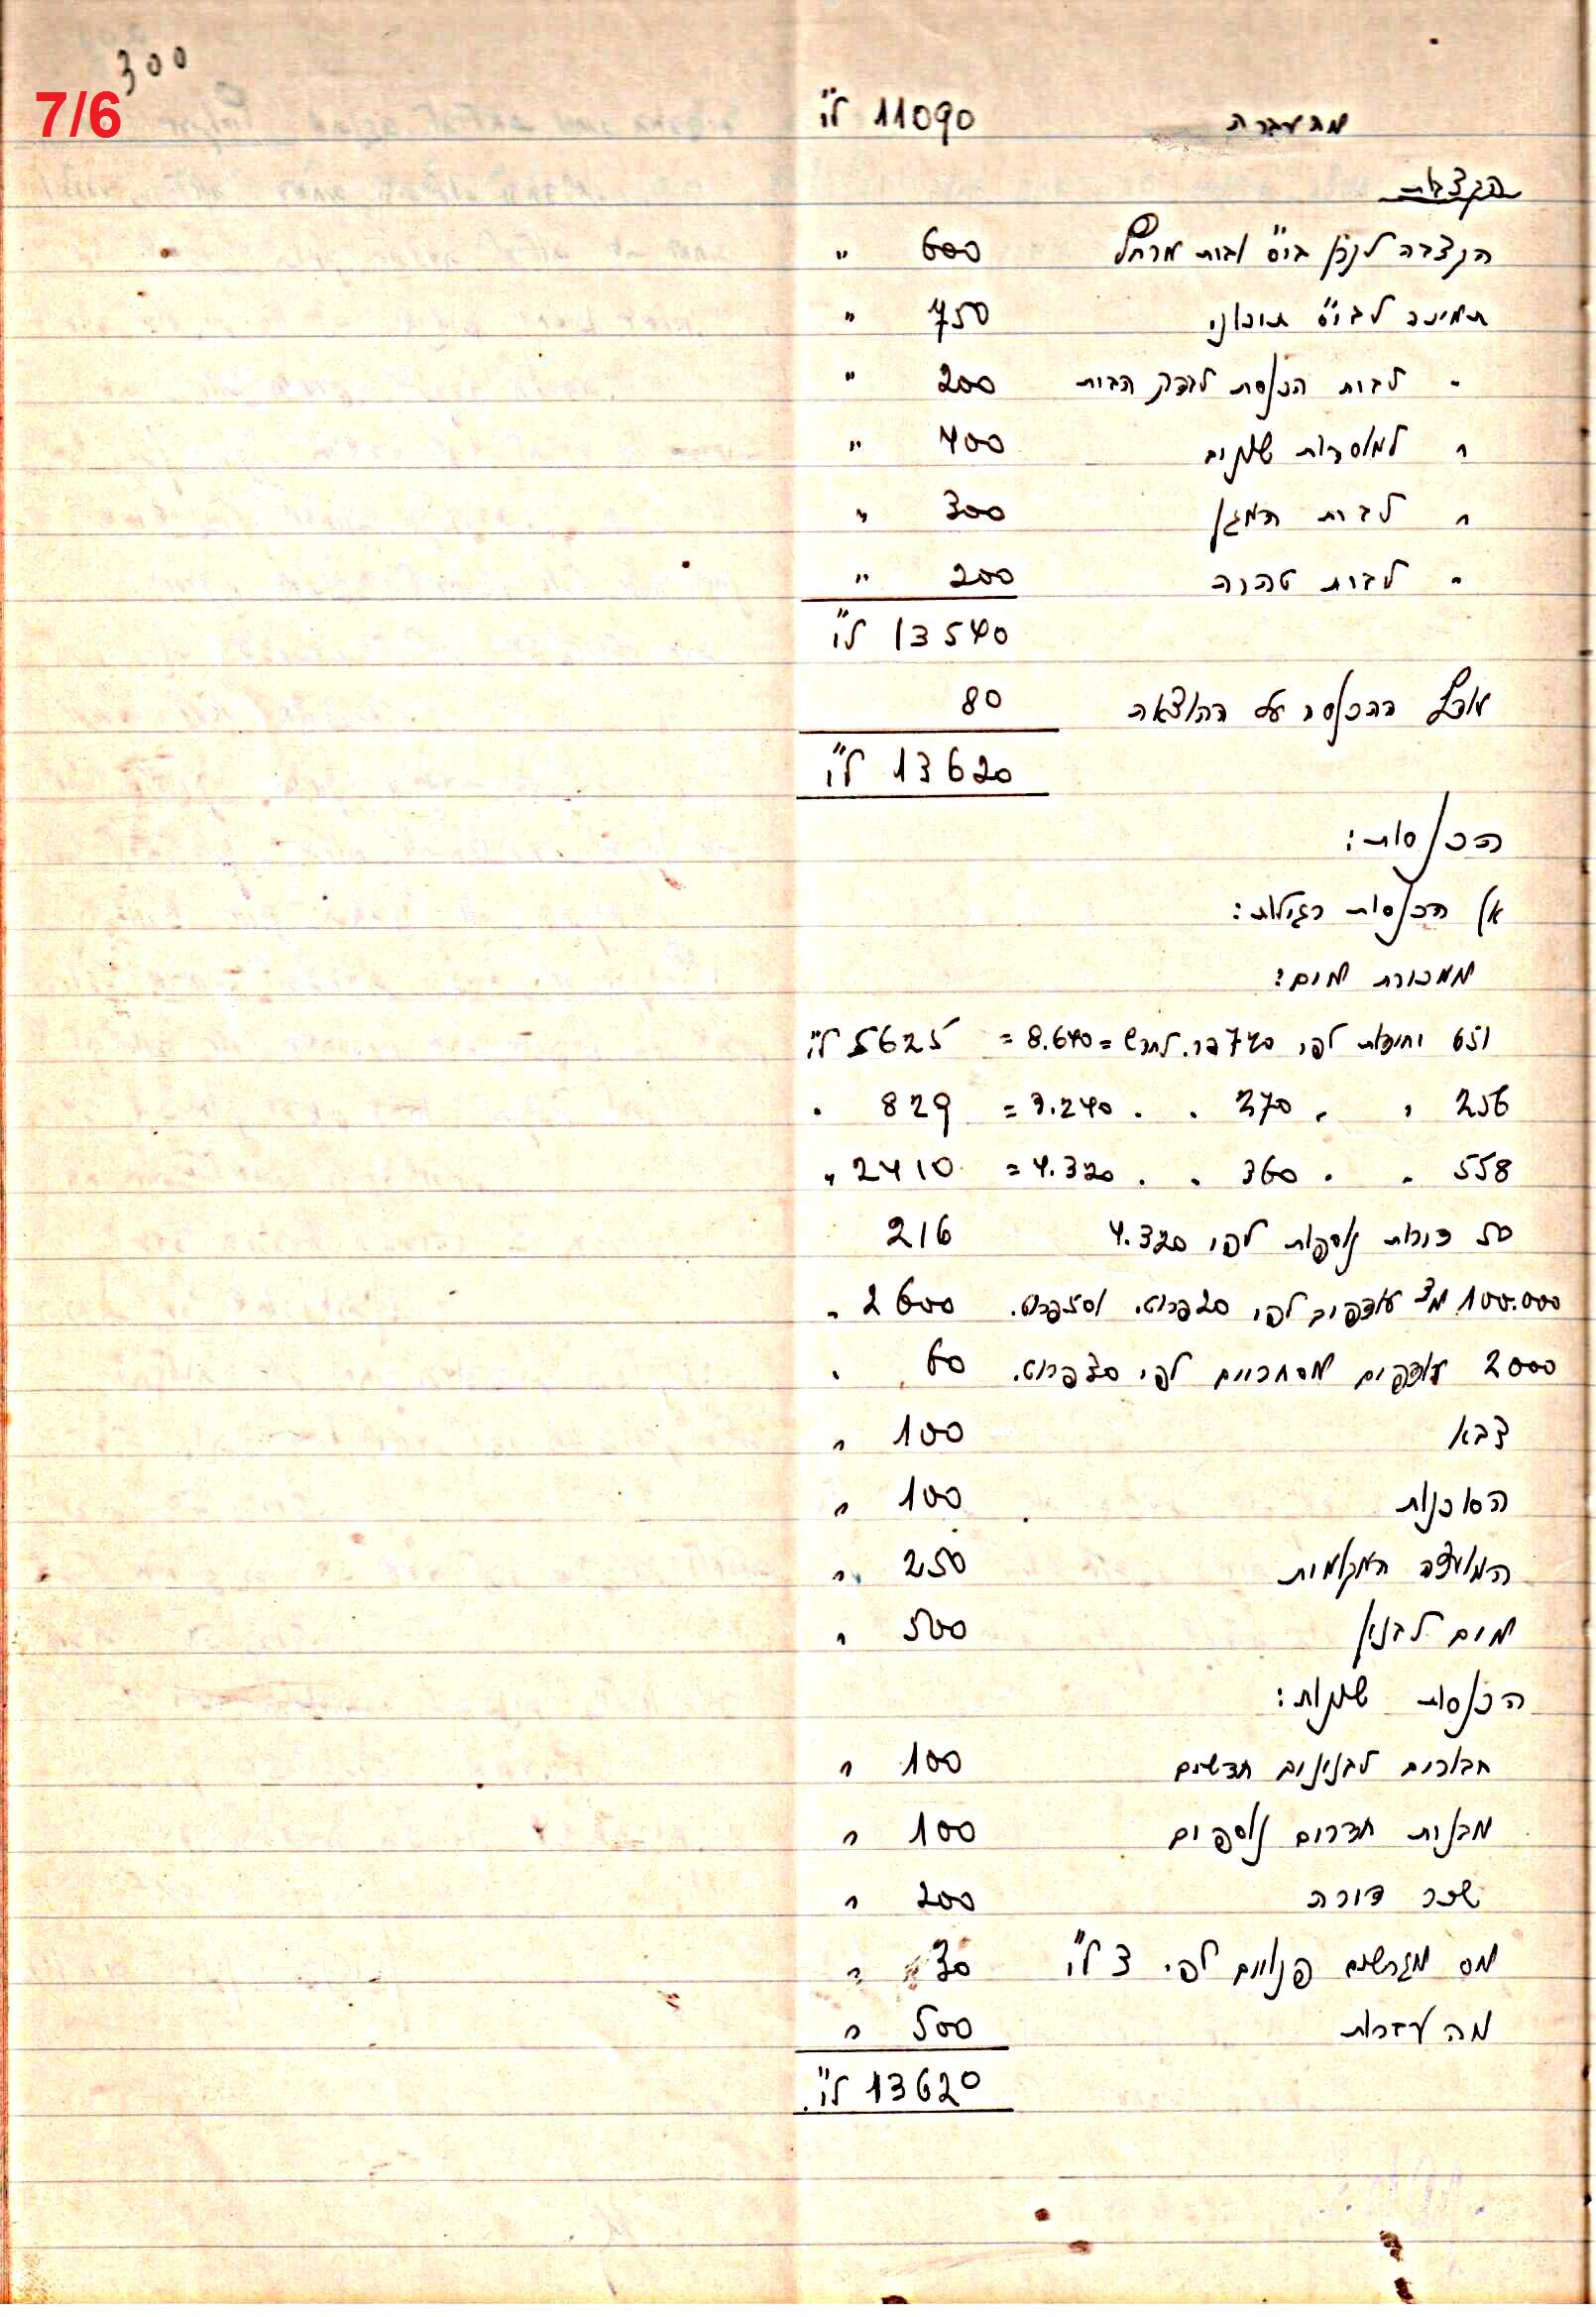 300
7/6
מהעברה 11090 ל"י
הקצבות
הקצבה לקרן ביה"ס ובית מרחץ 600 "
תמיכה לבי"ס תיכוני 750 "
" לבית הכנסת לבדק הבית 200 "
" למוסדות שונים 400 "
" לבית המגן 300 "
" לבית טהרה 200 "
13540 ל"י
עודף ההכנסה על ההוצאה 80
13620 ל"י
הכנסות:
א) הכנסות רגילות:
ממכירת מים:
651 יחידות לפי 720 פר. לחודש = 8.640 = 5625 ל"י
256 " " 270 " " 3.240 = 829 "
558 " " 360 " " 4.320 = 2410 "
50 דירות נוספות לפי 4.320 216
100.000 מ3 עודפים לפי 20 פרוט. ו 50 פרוט. 2600 "
2000 עודפים מסחריים לפי 30 פרוט. 60 "
צבא 100 "
הסוכנות 100 "
המועצה המקומית 250 "
מים לבנין 500 "
הכנסות שונות:
חבורים לבנינים חדשים 100 "
מבנית חדרים נוספים 100 "
שכר דירה 200 "
מס מגרשים פנויים לפי 3 ל"י 30 "
מהעזרות 500 "
13620 ל"י.